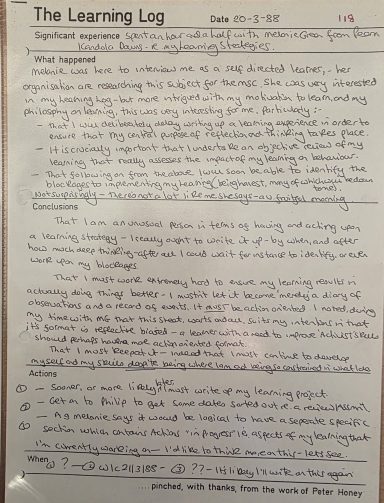 The Learning Log Date 20-3-88 118
Significant experience spent an hour and a half with Melanie Green from Pearn
Kandola Downs - re my learning strategies.
What happened
Melanie was here to interview me as a self directed learner, - her
organisation are researching this subject for the MSC. She was very interested
in my learning log - but more intrigued with my motivation to learn, and my
philosophy on learning, this was very interesting for me, particularly :-
- That I was deliberately delaying writing up a learning experience in order to
ensure that my central purpose of reflection and thinking takes place.
- It is crucially important that I undertake an objective review of my
learning that really assesses the impact of my learning on behaviour.
- That following on from the above I will soon be able to identify the
blockages to implementing my learning (being honest, many of which will be down
to me).
Not surprisingly - There's not a lot like me she says - a v. fruitful morning
Conclusions
That I am an unusual person in terms of having and acting upon
a learning strategy - I really ought to write it up - by when, and after
how much deep thinking - after all I could wait for instance to identify, or even
work upon my blockages
That I must work extremely hard to ensure my learning results in
actually doing things better - I mustn't let it become merely a diary of
observations and a record of events. It must be action oriented. I noted, during
my time with MG that this sheet, warts and all, suits my intentions in that
it's format is reflective biased - a learner with a need to improve Activist skills
should perhaps have a more action oriented format.
That I must keep at it - indeed that I must continue to develop
myself and my skills despite being where I am and being so constrained in what I do
Actions
① - Sooner, or more likely later I must write up my learning project
② - Get on to Philip to get some dates sorted out re. a review
③ - As Melanie says it would be logical to have a separate specific
section which contains Actions "in progress" ie aspects of my learning that
I'm currently working on - I'd like to think more on this - lets see.
When ① ? - ② w/c 21/3/88 - ③ ?? - It's likely I'll write on this again
....pinched, with thanks, from the work of Peter Honey